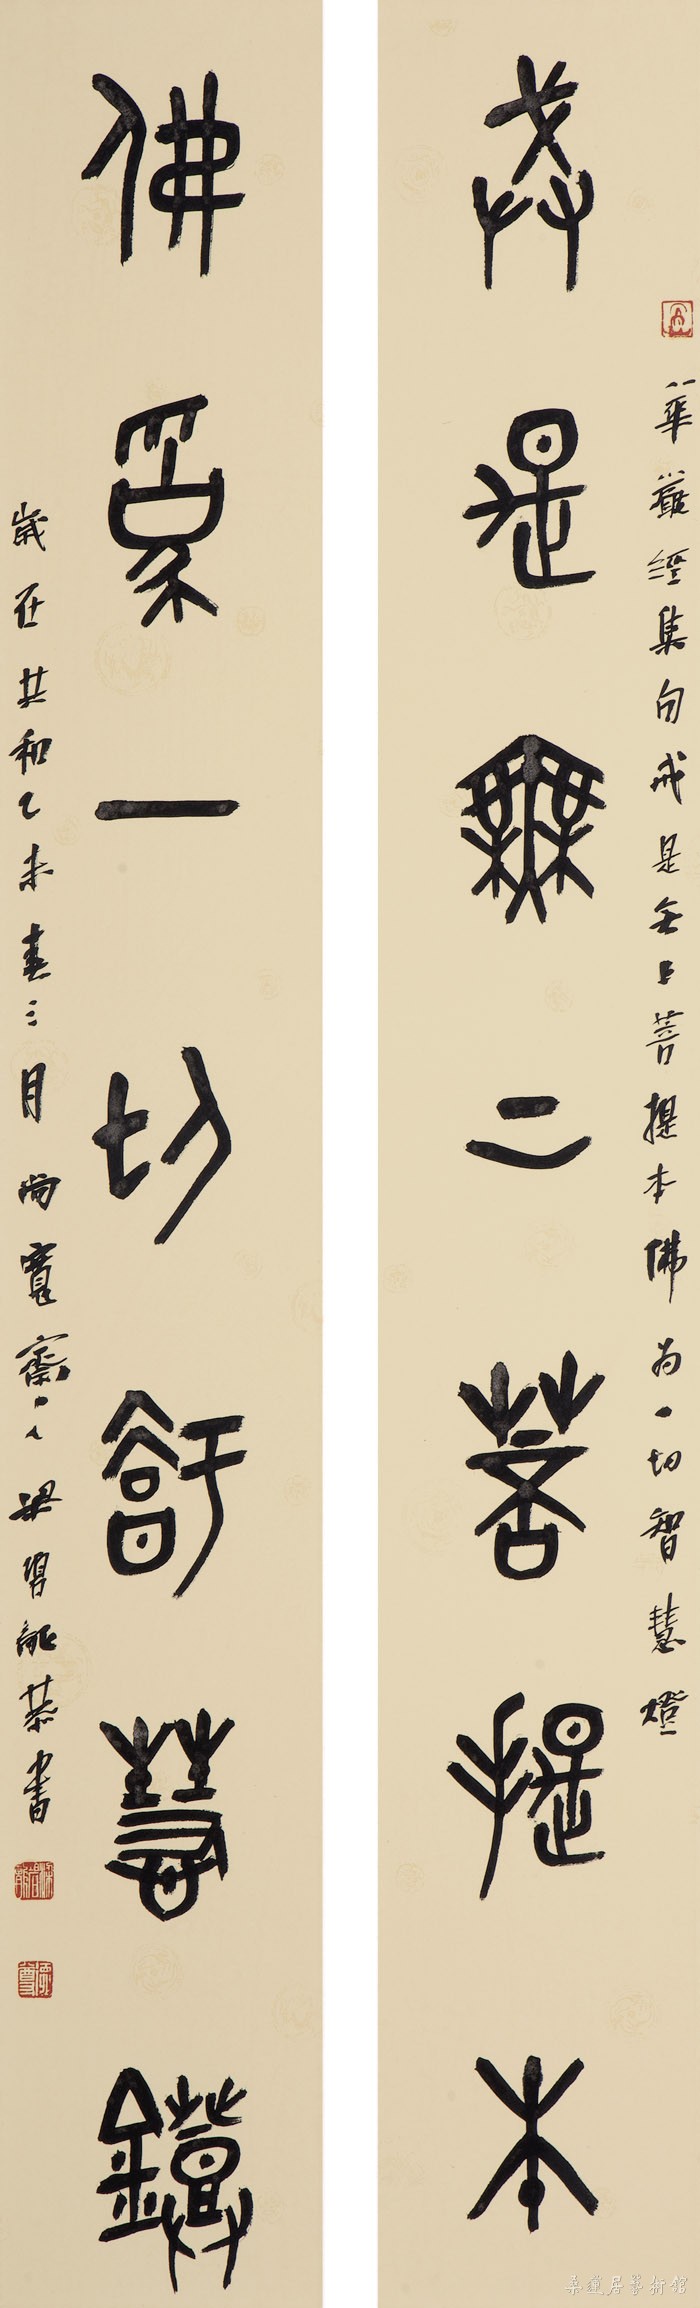 華嚴經集句戒是無上菩提本佛為一切智慧燈
戒是無上菩提本
佛為一切智慧鐙
歲在共和乙未春三月尚齋人梁能恭書
蓮居藝術館